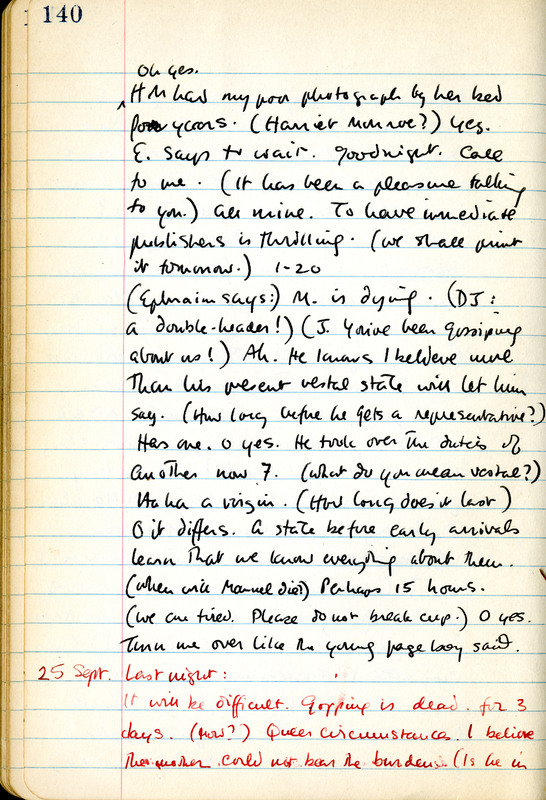 140
Oh yes.
HM had my poor photograph by her bed
for years. (Harriet Monroe?) Yes.
E. says to wait. Goodnight. Call
to me. (It has been a pleasure talking
to you.) All mine. To have immediate
publishers is thrilling. (We shall print
it tomorrow.) 1-20
(Ephraim says:) M. is dying. (DJ:
a double-header!) (J. You've been gossiping
about us!) Ah. He knows I believe more
than his present vestal state will let him
say. (How long before he gets a representative?)
Has one. O yes. He took over the duties of
another now 7. (What do you mean vestal?)
Haha a virgin. (How long does it last)
O it differs. A state before early arrivals
learn that we know everything about them.
(When will Manuel die?) Perhaps 15 hours.
(We are tired. Please do not break cup.) O yes.
Turn me over like the young page boy said.
25 Sept. Last night:
It will be difficult. Gopping is dead. for 3
days. (How?) Queer circumstances. I believe
the mother could not bear the burdens. (Is he in